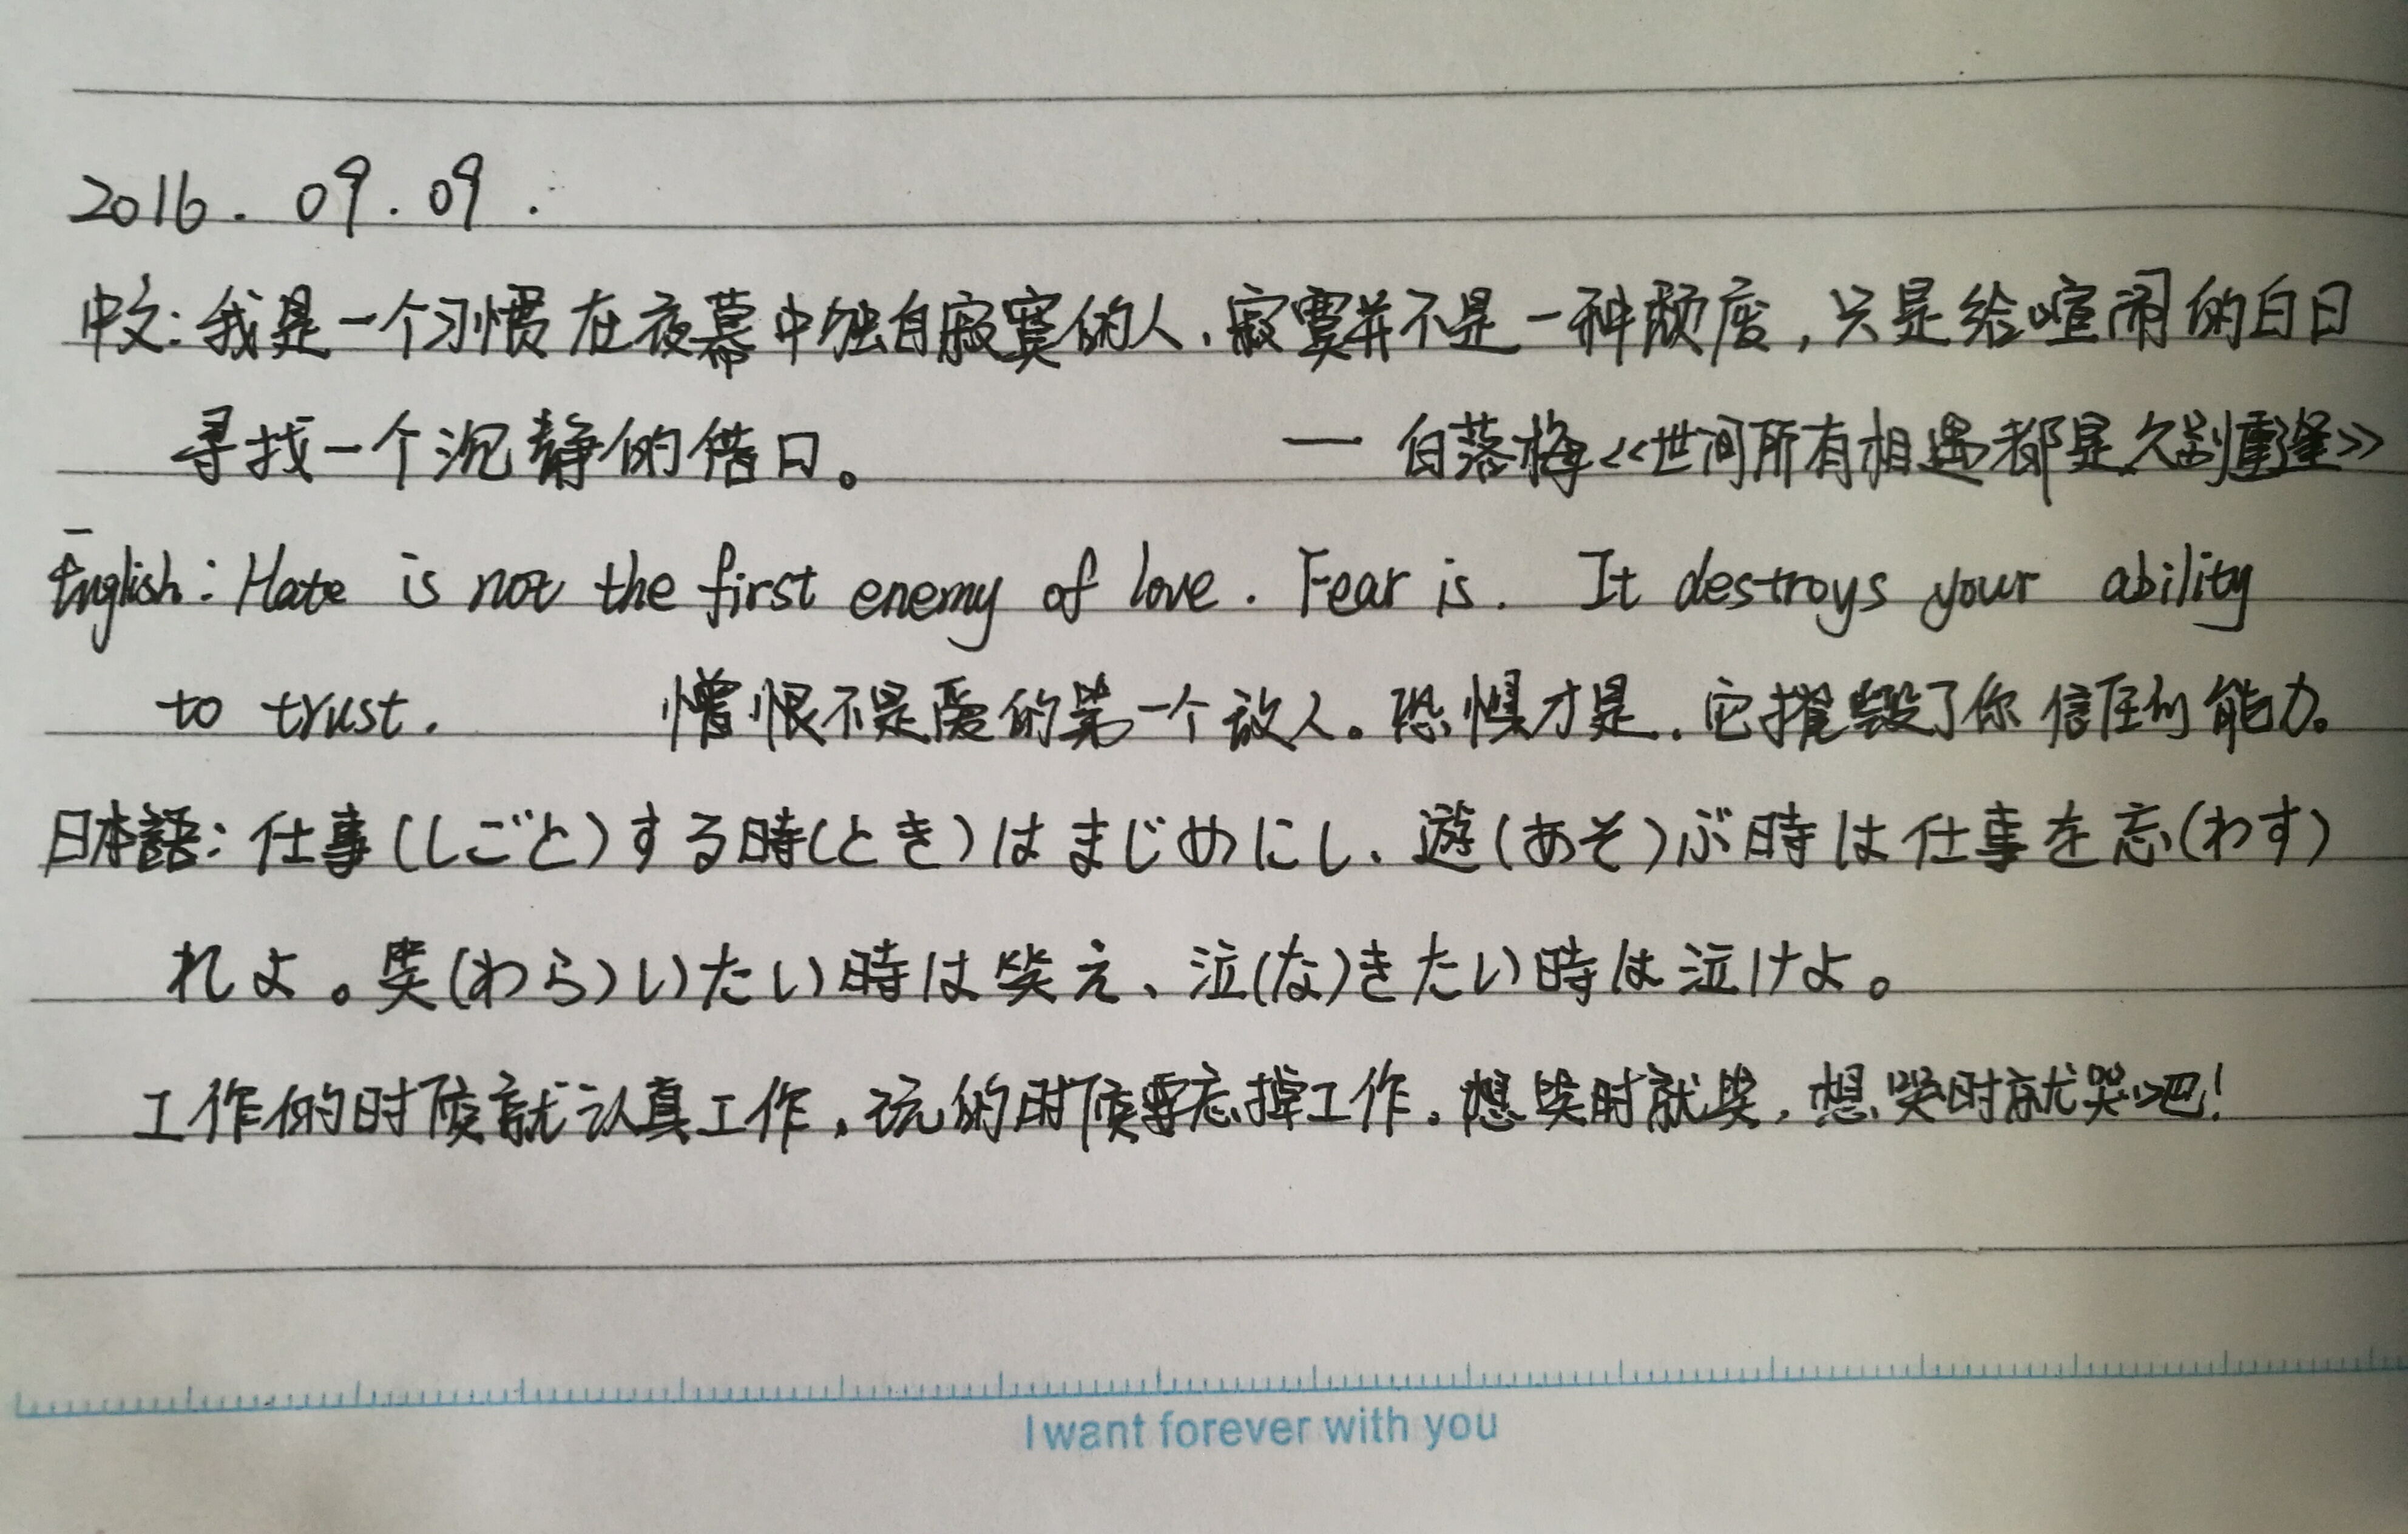 2016.09.09.
中文:我是一个习惯在夜幕中独自寂寞的人、寂寞并不是一种颓废,只是给喧闹的白日
寻找一个沉静的借口。 — 白落梅《世间所有相遇都是久别重逢》
English: Hate is not the first enemy of love. Fear is. It destroys your ability
to trust. 憎恨不是爱的第一个敌人。恐惧才是.它摧毁了你信任的能力。
日本語:仕事(しごと)する時(とき)はまじめにし、遊(あそ)ぶ時は仕事を忘(わす)
れよ。笑(わら)いたい時は笑え、泣(な)きたい時は泣けよ。
工作的时候就认真工作,玩的时候要忘掉工作。想笑时就笑,想哭时就哭吧!
I want forever with you